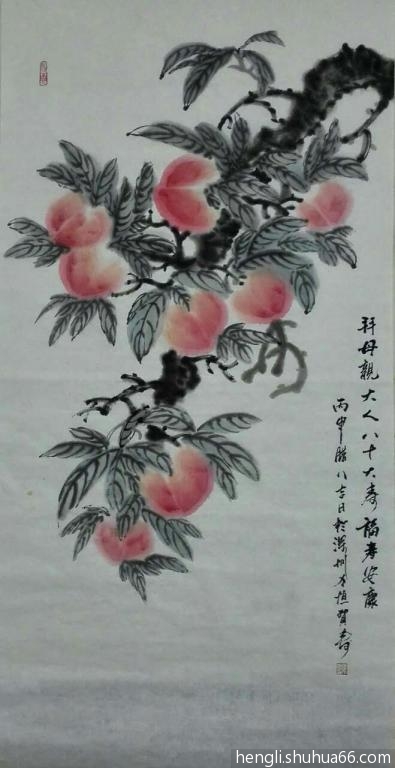 拜母親大人八十大寿福寿安康
丙申腊八吉日於深圳 恒賀寿
henglishuhua66.com